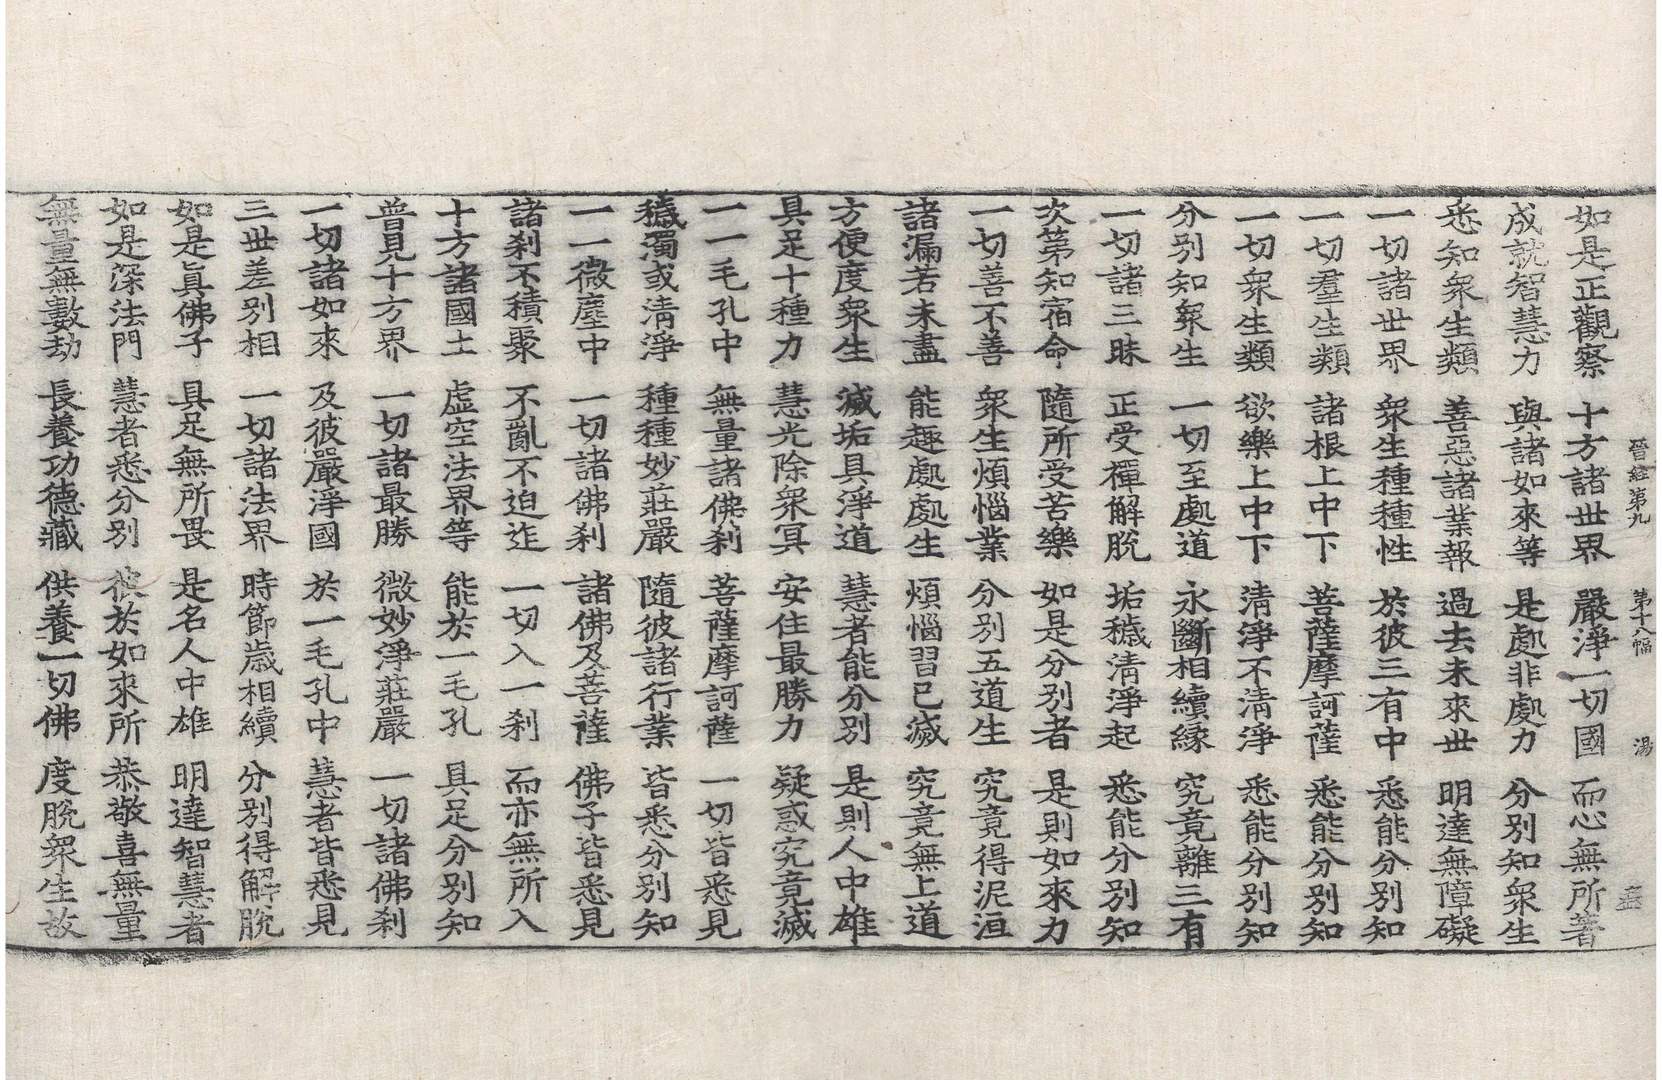 晉經第九 第十八幅 湯
如是正觀察 十方諸世界 嚴淨一切國 而心無所著
成就智慧力 與諸如來等 是處非處力 分別知衆生
悉知衆生類 善惡諸業報 過去未來世 明達無障礙
一切諸世界 衆生種種性 於彼三有中 悉能分別知
一切羣生類 諸根上中下 菩薩摩訶薩 悉能分別知
一切衆生類 欲樂上中下 清淨不清淨 悉能分別知
分別知衆生 一切至處道 永斷相續緣 究竟離三有
一切諸三昧 正受禪解脫 垢穢清淨起 悉能分別知
次第知宿命 隨所受苦樂 如是分別者 是則如來力
一切善不善 衆生煩惱業 分別五道生 究竟得泥洹
諸漏若未盡 能趣處處生 煩惱習已滅 究竟無上道
方便度衆生 滅垢具淨道 慧者能分別 是則人中雄
具足十種力 慧光除衆冥 安住最勝力 疑惑究竟滅
一一毛孔中 無量諸佛刹 菩薩摩訶薩 一切皆悉見
穢濁或清淨 種種妙莊嚴 隨彼諸行業 皆悉分別知
一一微塵中 一切諸佛刹 諸佛及菩薩 佛子皆悉見
諸刹不積聚 不亂不迫迮 一切入一刹 而亦無所入
十方諸國土 虛空法界等 能於一毛孔 具足分別知
普見十方界 一切諸最勝 微妙淨莊嚴 一切諸佛刹
一切諸如來 及彼嚴淨國 於一毛孔中 慧者皆悉見
三世差別相 一切諸法界 時節歲相續 分別得解脫
如是眞佛子 具足無所畏 是名人中雄 明達智慧者
如是深法門 慧者悉分別 彼於如來所 恭敬喜無量
無量無數劫 長養功德藏 供養一切佛 度脫衆生故